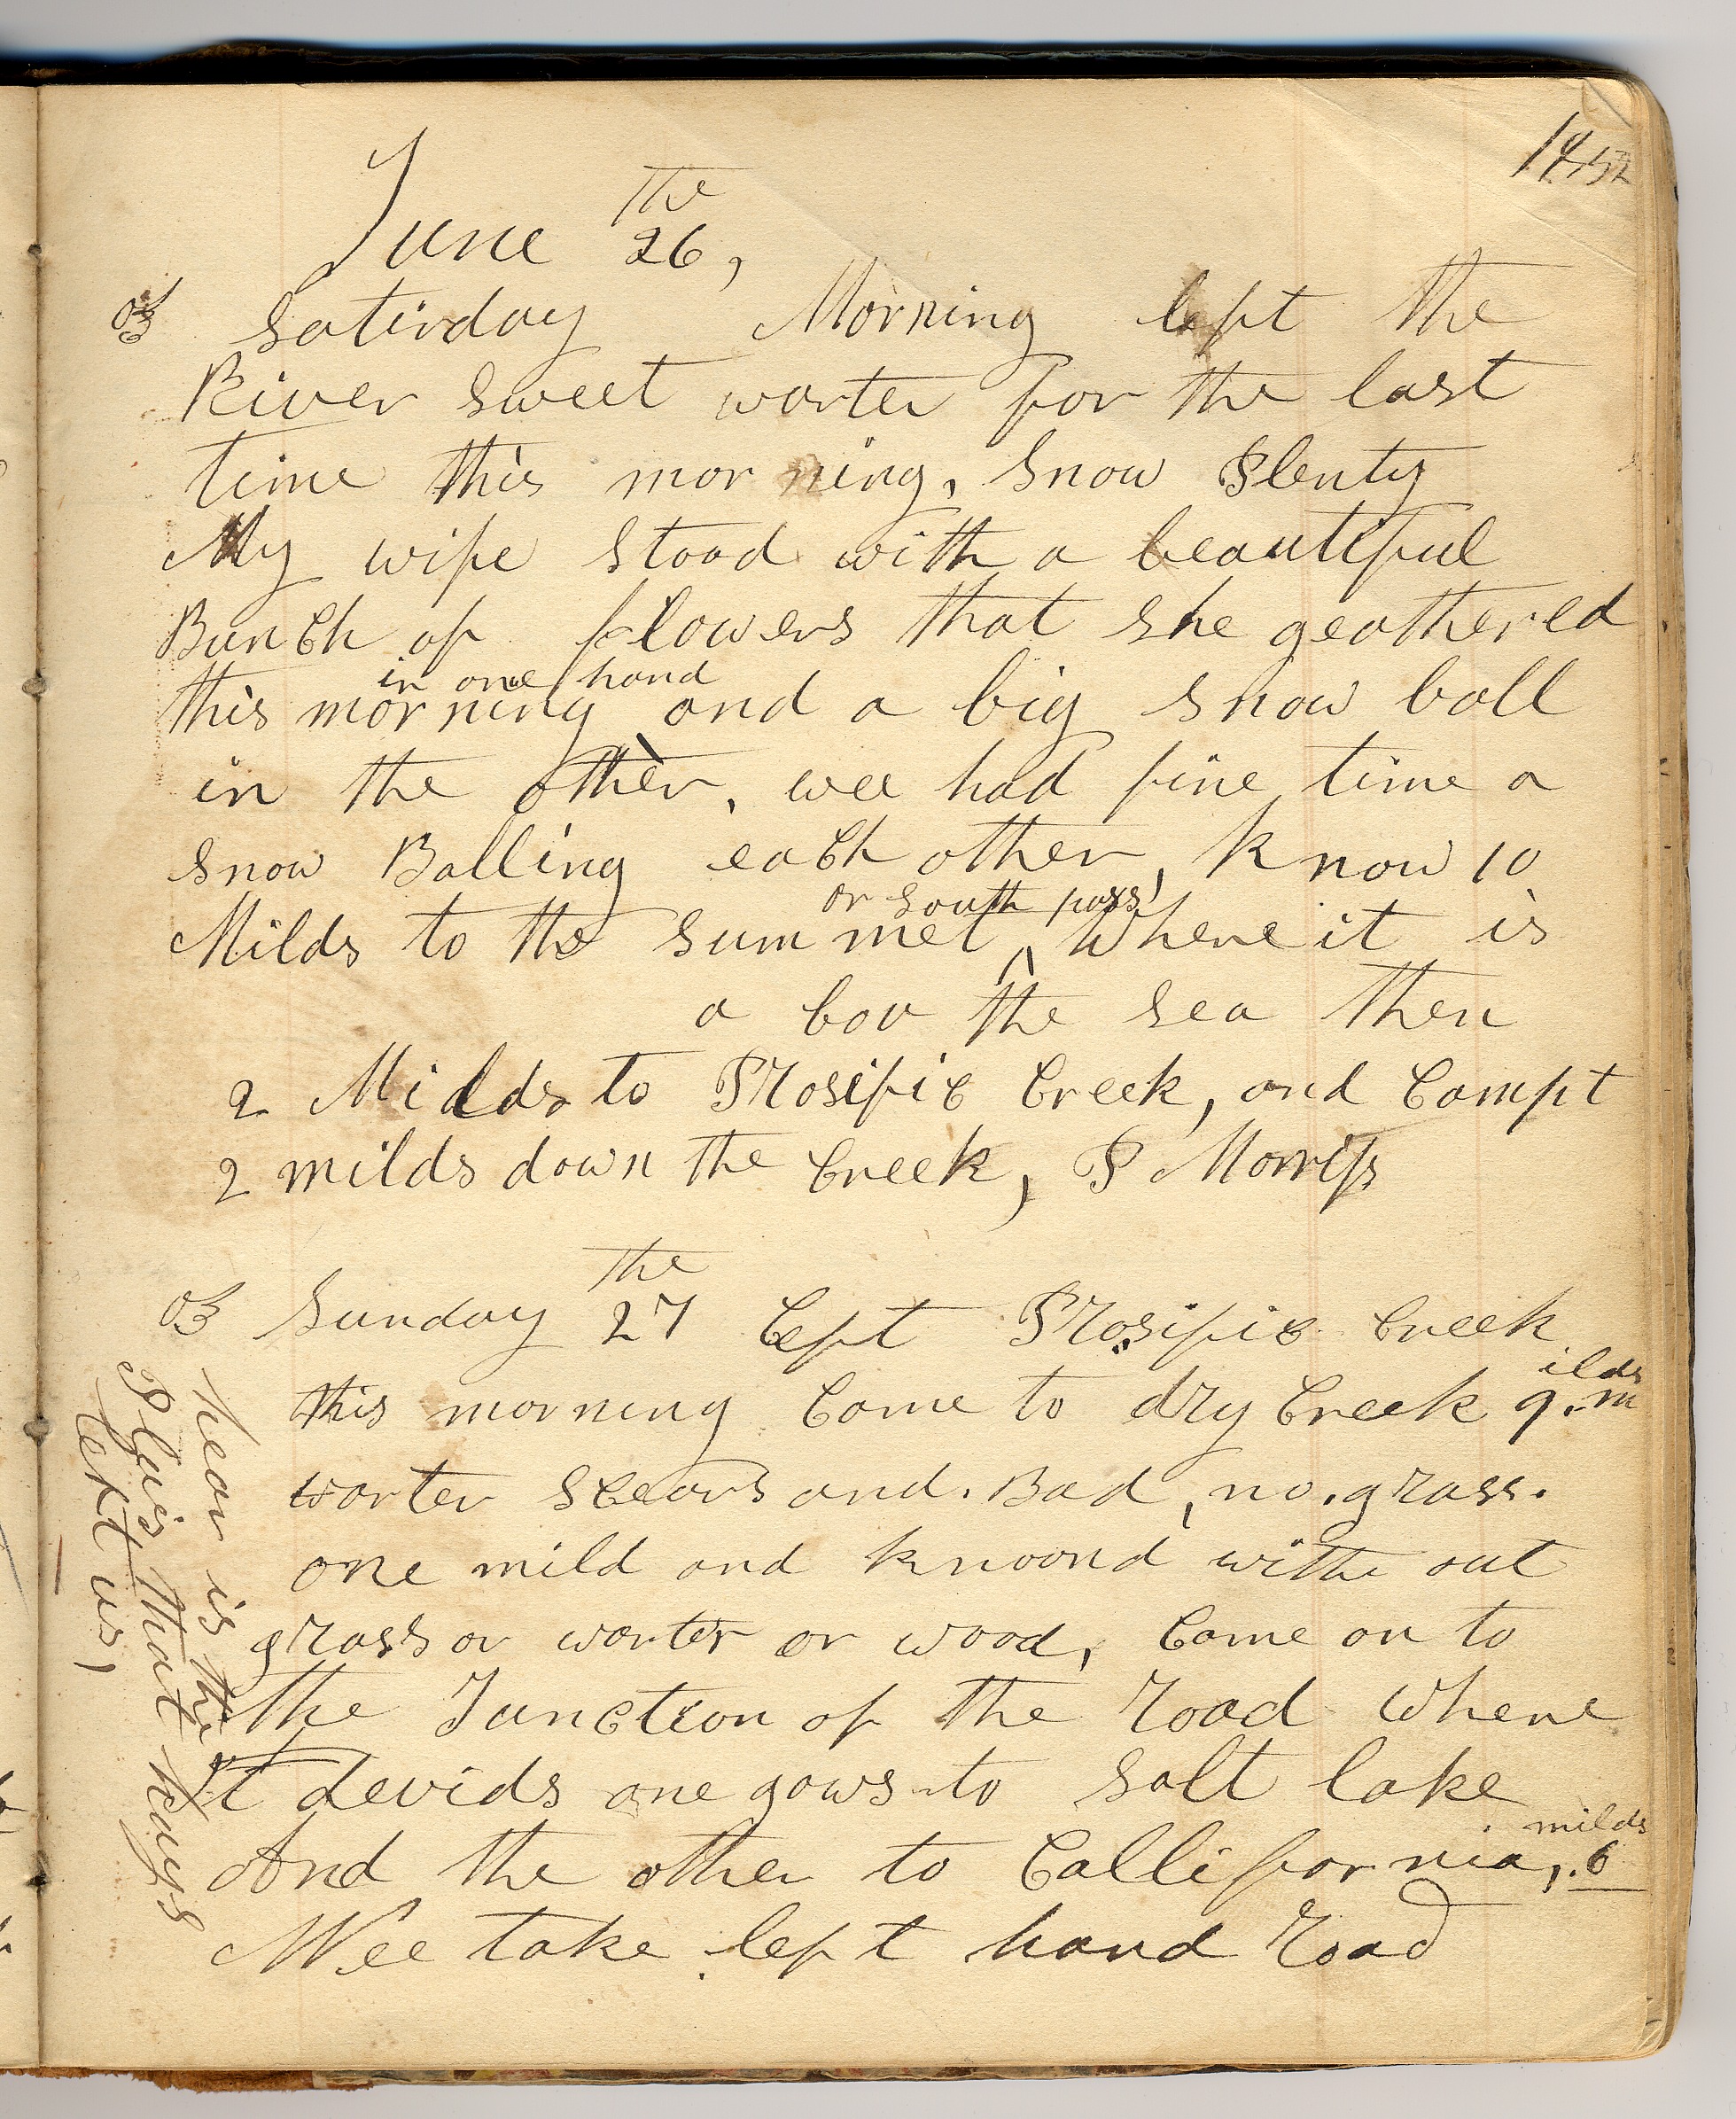 the
June 26,
Satirday Morning left the
River Sweet worter for the last
time this mor ning, Snow Plenty
My wife stood with a beautiful
Bunch of flowers that she geathered
in one hand
this morning and a big snow ball
in the other, wee had fine time a
snow Balling each other, know 10
or south pass
Milds to the summet ^ Where it is
a bov the sea then
2 Milds to Prosific Creek, and Campt
2 milds down the Creek, P Morriss
the
Sunday 27 Left Prosific Creek
ilds
this morning Come to dry Creek 9.m
worter scears and. Bad, no.grass.
one mild and knoond withe out
grass or worter or wood, Come on to
the Junction of the road Where
it devids one gows to Salt lake
milds
And the other to Callifornia, 6
Wee take left hand Road
hear is the
Plais that Hays
left us,